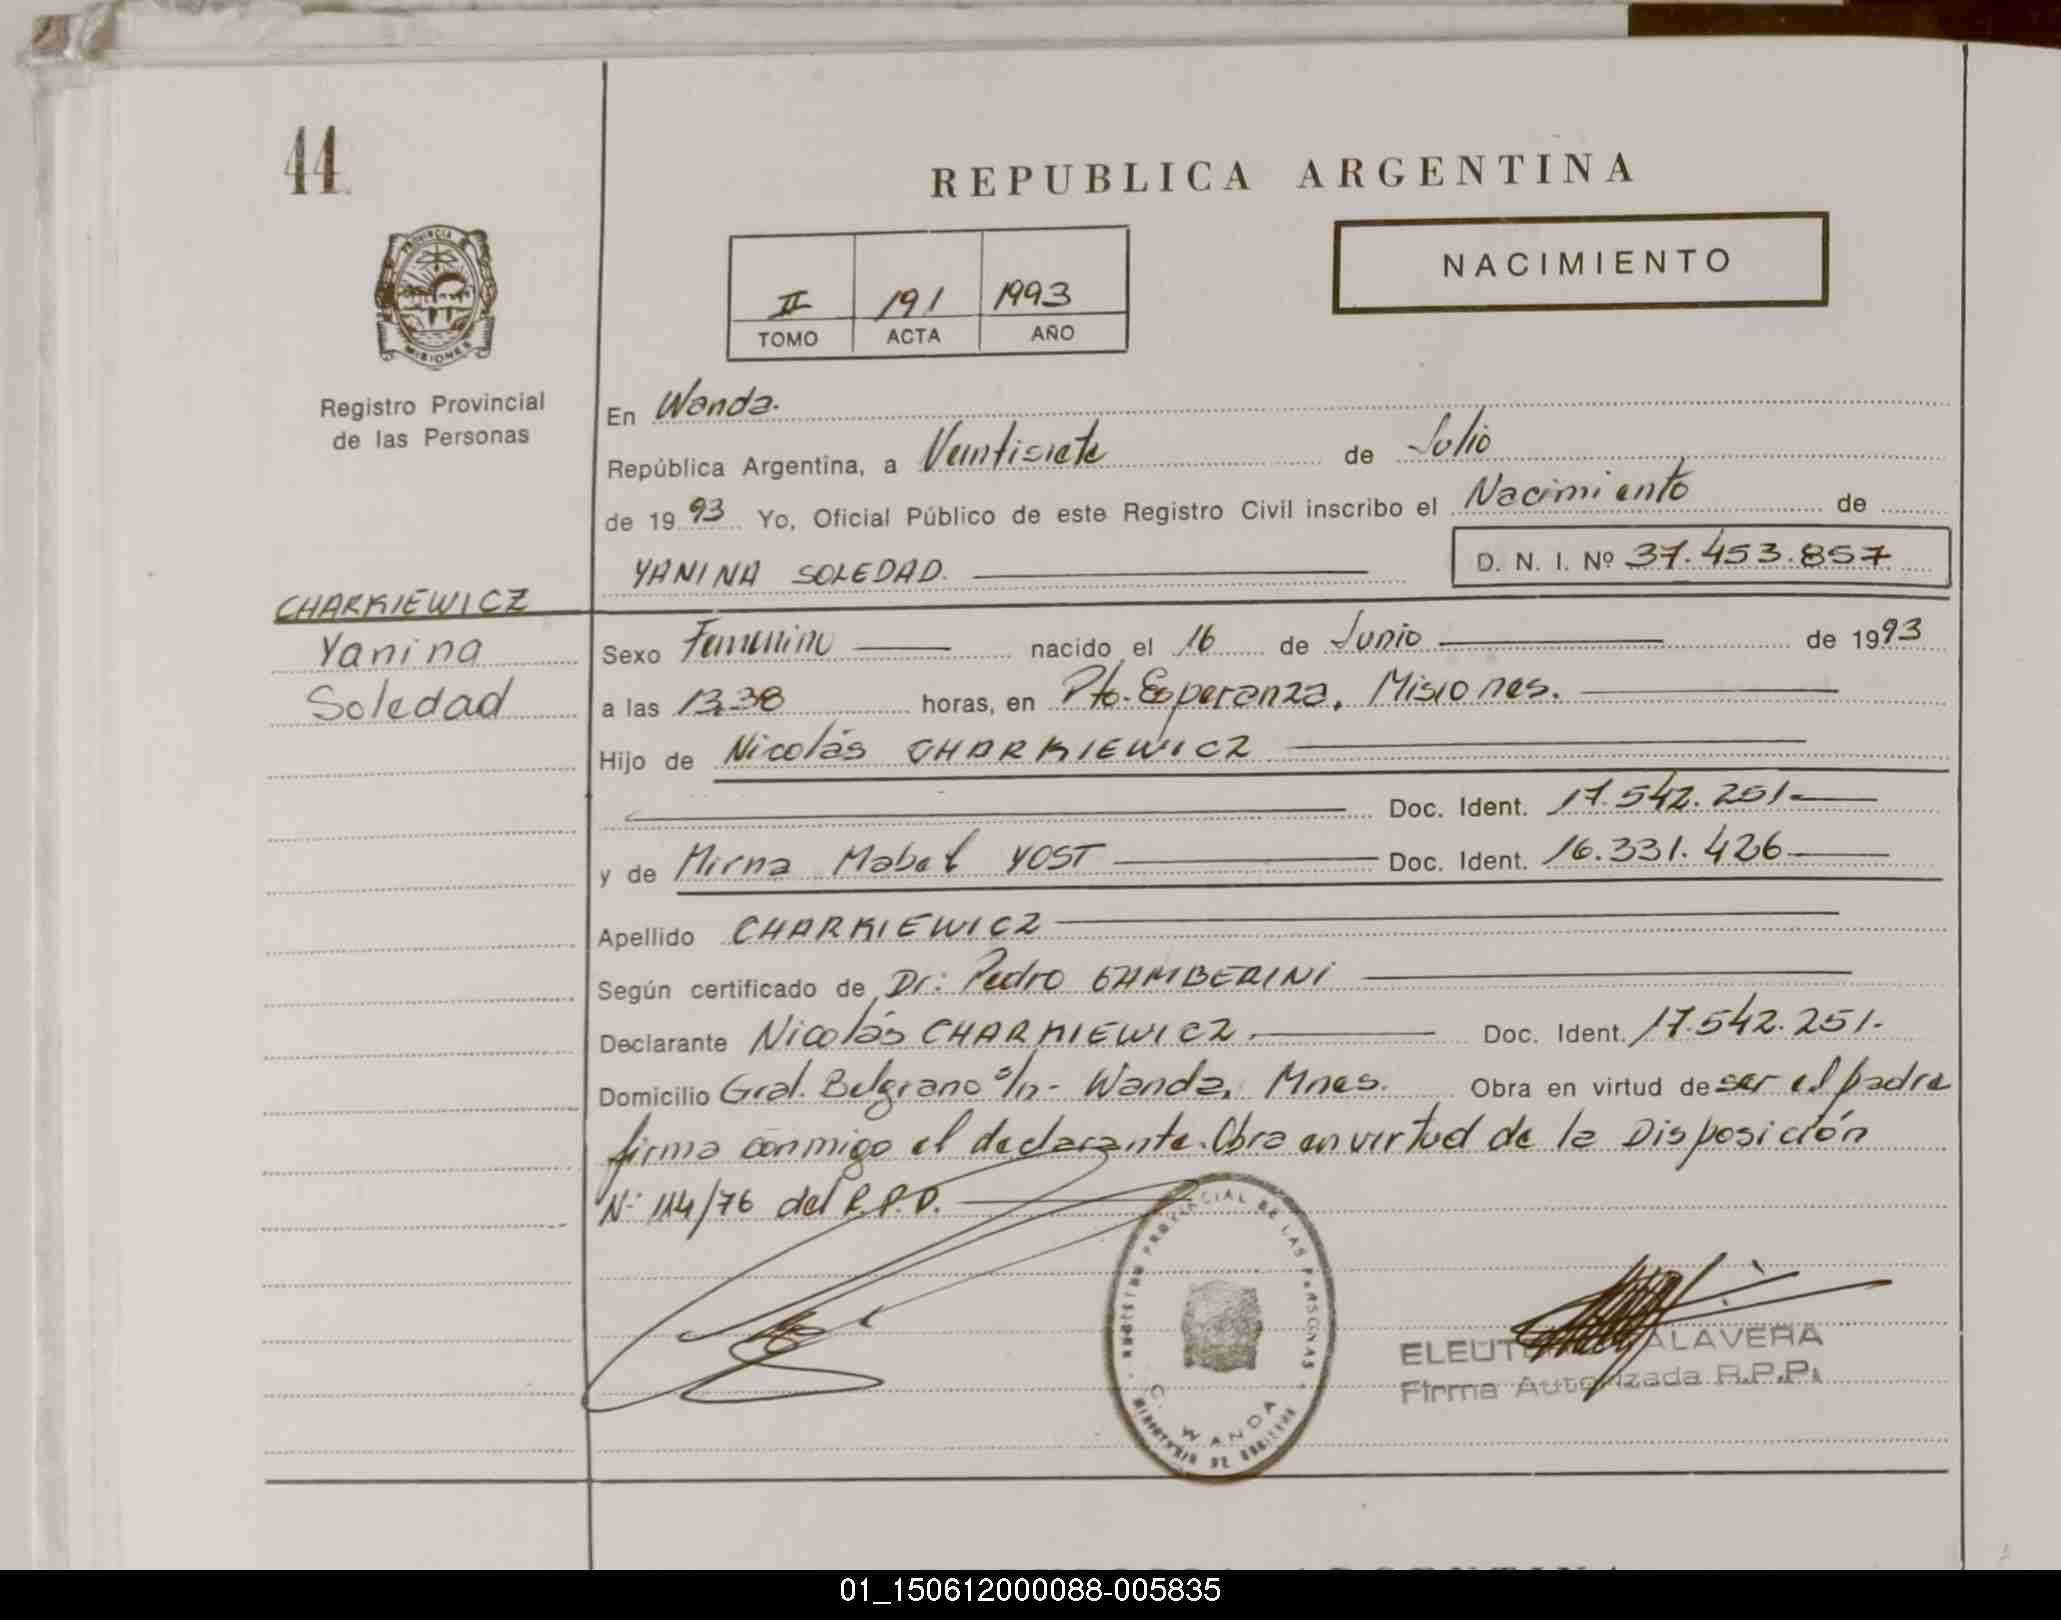 44
REPUBLICA ARGENTINA
PROVINCIA DE
MISIONES
NACIMIENTO
II 191 1993
TOMO ACTA AÑO
Registro Provincial
de las Personas
En Wanda.
República Argentina, a Veintisiete de Julio
de 19 93 Yo, Oficial Público de este Registro Civil inscribo el Nacimiento de
YANINA SOLEDAD. D. N. I. Nº 37.453.857
CHARKIEWICZ
Yanina
Soledad
Sexo Femenino nacido el 16 de Junio de 1993
a las 13,38 horas, en Pto. Esperanza, Misiones.
Hijo de Nicolás CHARKIEWICZ
Doc. Ident. 17.542.251.
y de Mirna Mabel YOST Doc. Ident. 16.331.426
Apellido CHARKIEWICZ
Según certificado de Dr: Pedro GAMBERINI
Declarante Nicolás CHARKIEWICZ. Doc. Ident. 17.542.251.
Domicilio Gral. Belgrano s/n- Wanda, Mnes. Obra en virtud de ser el padre
firma conmigo el declarante. Obra en virtud de la Disposición
Nº 114/76 del R.P.P.
REGISTRO PROVINCIAL DE LAS PERSONAS
C. WANDA
MINISTERIO DE GOBIERNO
ALAVERA
Firma Autorizada R.P.P.
01_150612000088-005835